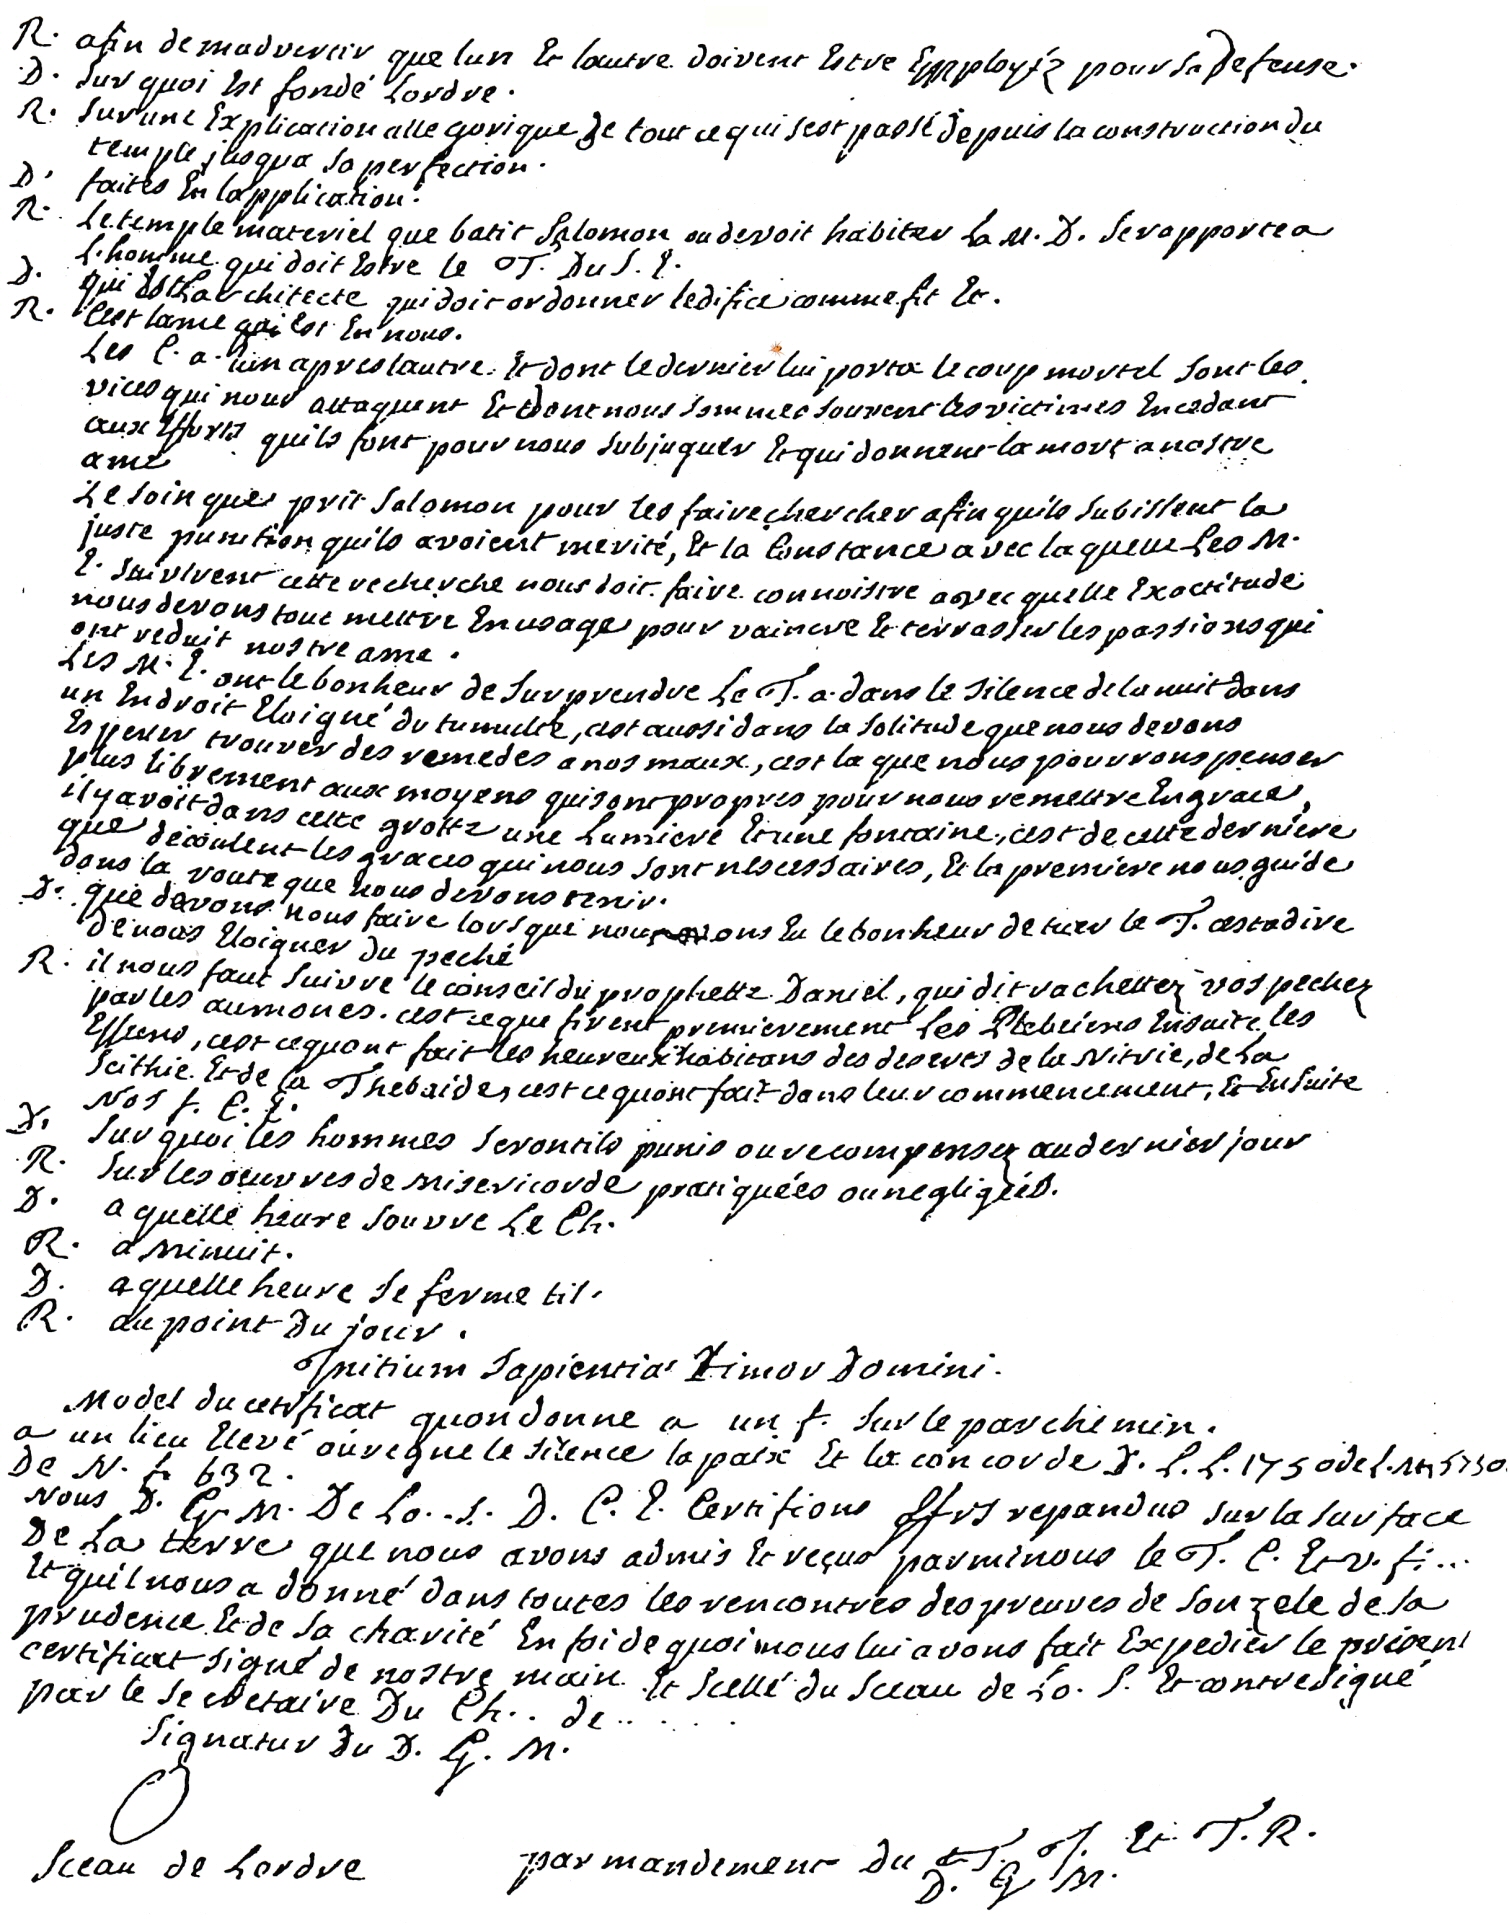 R. afin de madvertir que lun Et lautre doivent Estre Employéz pour sa Defense.
D. Sur quoi Est fondé Lordre.
R. Sur une Explication allegorique de tout ce qui sest passé depuis la construction du
temple jusqua sa perfection.
D. faites En lapplication.
R. Le temple materiel que batit Salomon ou devoit habiter La M. D. Se rapporte a
L'homme qui doit Estre le T. Du S. E.
D. qui Est Larchitecte qui doit ordonner ledifice comme fit Et.
R. Cest lame qui Est En nous.
Les C. a. lun apres lautre. Et dont le dernier lui porta le coup mortel sont les
vices qui nous attaquent Et dont nous sommes souvent les victimes En cedant
aux Efforts quils font pour nous subjuguer Et qui donnent la mort a nostre
ame
Le soin que prit Salomon pour les faire chercher afin quils subissent la
juste punition quils avoient merité, Et la Constance avec laquelle Les M.
E. suivirent cette recherche nous doit faire connoistre avec quelle Exactitude
nous devons tout mettre En usage pour vaincre Et terrasser les passions qui
ont reduit nostre ame.
Les M. E. ont le bonheur de surprendre Le T. a. dans le silence de la nuit dans
un Endroit Eloigné du tumulte, cest aussi dans la solitude que nous devons
Esperer trouver des remedes a nos maux, cest la que nous pourrons penser
plus librement aux moyens qui sont propres pour nous remettre En grace,
il y avoit dans cette grotte une Lumiere Et une fontaine, cest de cette derniere
que decoulent les graces qui nous sont nescessaires, Et la premiere nous guide
dans la voute que nous devons tenir.
D. que devons nous faire lorsque nous avons Eu le bonheur de tuer le T. cestadire
de nous Eloigner du peché
R. il nous faut suivre le conseil du prophette Daniel, qui dit rachettez vos pechez
par les aumones. cest ce que firent premierement Les Plebeiens Ensuite les
Esseens, cest ce quont fait les heureux habitans des deserts de la Nitrie, de La
Scithie Et de la Thebaide, cest ce quont fait dans leur commencement, Et Ensuite
Nos f. C. E.
D. Sur quoi les hommes serontils punis ou recompensez au dernier jour
R. Sur les oeuvres de misericorde pratiquées ou negligées.
D. a quelle heure souvre Le Ch.
R. a Minuit.
D. a quelle heure se ferme til.
R. au point Du jour.
Initium Sapientiae Timor Domini.
Model du certificat quon donne a un f. sur le parchemin.
a un lieu Elevé ou regne le silence la paix Et la concorde D. L. L. 1750 de L. M. 5750.
De N. f. 632.
Nous D. G. M. De Lo.. S. D. C. E. Certifions ffrs repandus sur la surface
De La terre que nous avons admis Et reçus parmi nous le T. C. Et v. f: ...
Et qu'il nous a donné dans toutes les rencontres des preuves de son zele de sa
prudence Et de sa charité En foi de quoi nous lui avons fait Expedier le present
certificat signé de nostre main Et scellé du sceau de Lo. S. Et contresigné
par le Secretaire Du Ch. . de . . . . .
Signatur Du D. G. M.
Sceau de Lordre
par mandement du T. T. Et T. R.
D. G M.